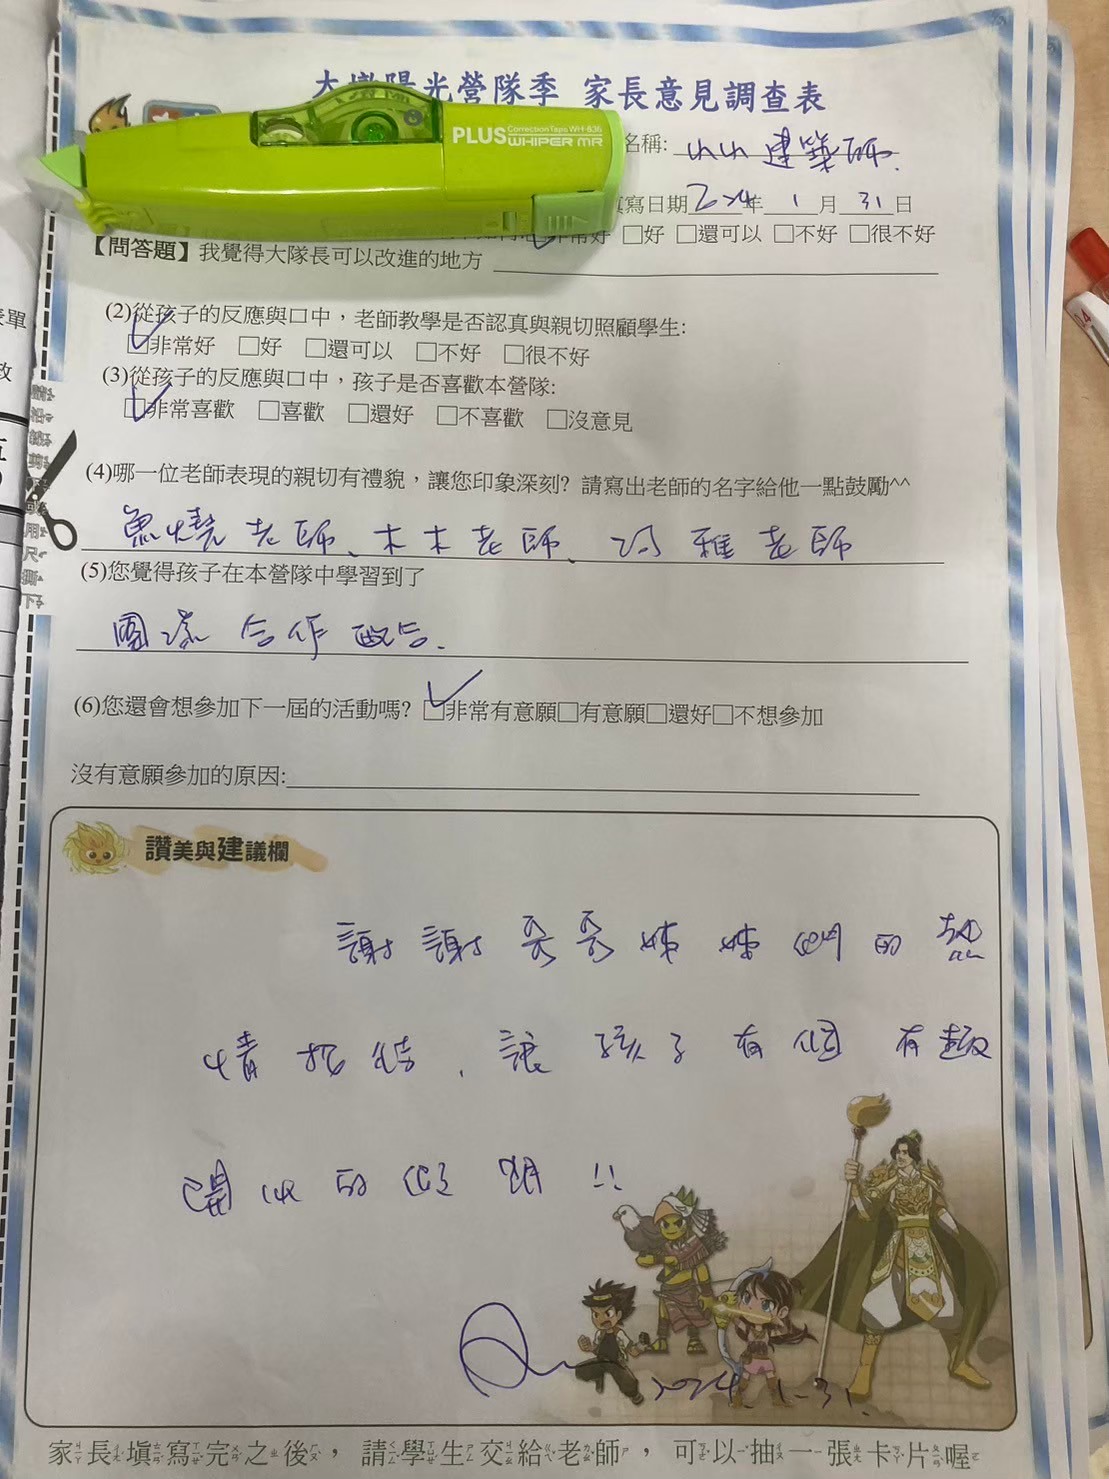 大墩陽光營隊季 家長意見調查表
PLUS Correction Tape WH-636
WHIPER MR
名稱: 小小建築師.
填寫日期2024年1月31日
非常好 □好 □還可以 □不好 □很不好
【問答題】我覺得大隊長可以改進的地方
(2)從孩子的反應與口中，老師教學是否認真與親切照顧學生:
□非常好 □好 □還可以 □不好 □很不好
(3)從孩子的反應與口中，孩子是否喜歡本營隊:
□非常喜歡 □喜歡 □還好 □不喜歡 □沒意見
(4)哪一位老師表現的親切有禮貌，讓您印象深刻? 請寫出老師的名字給他一點鼓勵^^
老師、木木老師、雅老師
(5)您覺得孩子在本營隊中學習到了
團隊合作配合.
(6)您還會想參加下一屆的活動嗎? □非常有意願□有意願□還好□不想參加
沒有意願參加的原因:
讚美與建議欄
謝謝哥哥姊姊們的熱
情招待，讓孩子有個有趣
開心的假期!!
2024.1.31.
家長填寫完之後，請學生交給老師，可以抽一張卡片喔